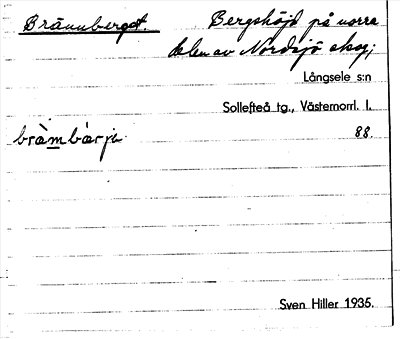 Brännberget. Bergshöjd på norra
delen av Nordsjö skog;
Långsele s:n
Sollefteå tg., Västernorrl. l.
bràmbárji 88.
Sven Hiller 1935.